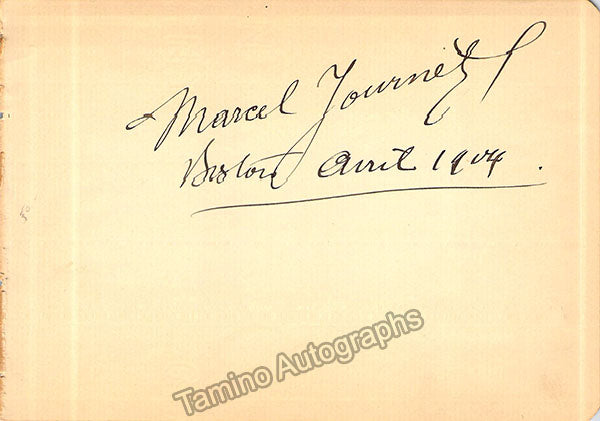 Marcel Journet
Boston Avril 1904.
Tamino Autographs